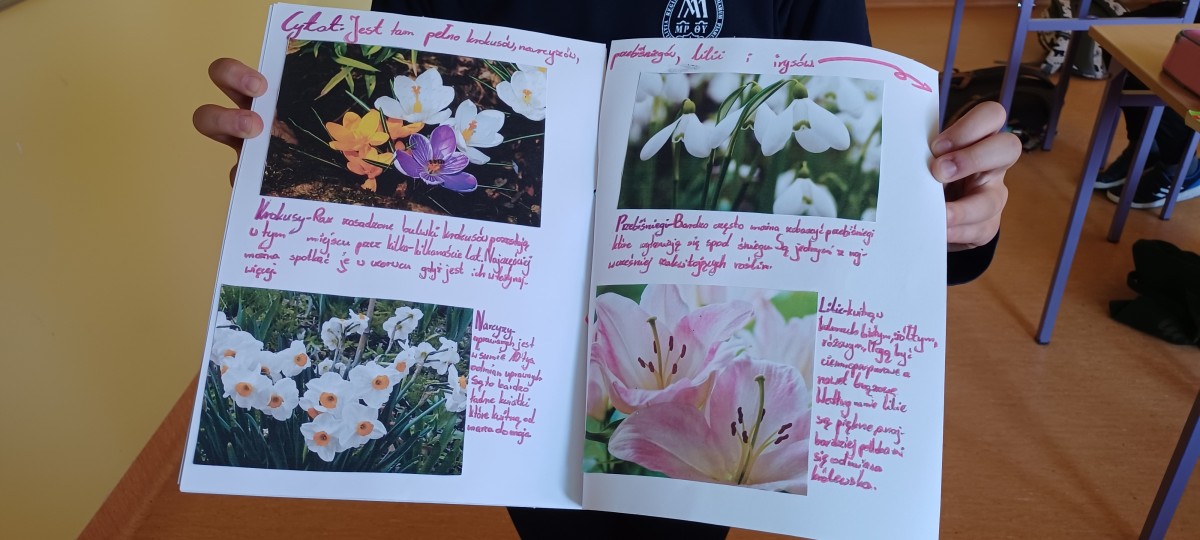 Cytat: Jest tam pełno krokusów, narcyzów,
przebiśniegów, lilii i irysów
Krokusy-Raz zasadzone bulwki krokusów pozostają
w tym miejscu przez kilka-kilkanaście lat. Najczęściej
można spotkać je w czerwcu gdyż jest ich w tedy naj-
więcej.
Narcyzy-
uprawianych jest
w sumie 10 tyś
odmian uprawnych
Są to bardzo
ładne kwiatki
które kwitną od
marca do maja
Przebiśniegi-Bardzo często można zobaczyć przebiśniegi
które wyłaniają się spod śniegu. Są jednymi z naj-
wcześniej zakwitających roślin.
Lilie-kwitną w
kolorach białym, żółtym,
różowym. Mogą być
ciemnopurpurowe a
nawet brązowe.
Według mnie lilie
są piękne, a naj-
bardziej podoba mi
się odmiana
królewska.
MP ΘY